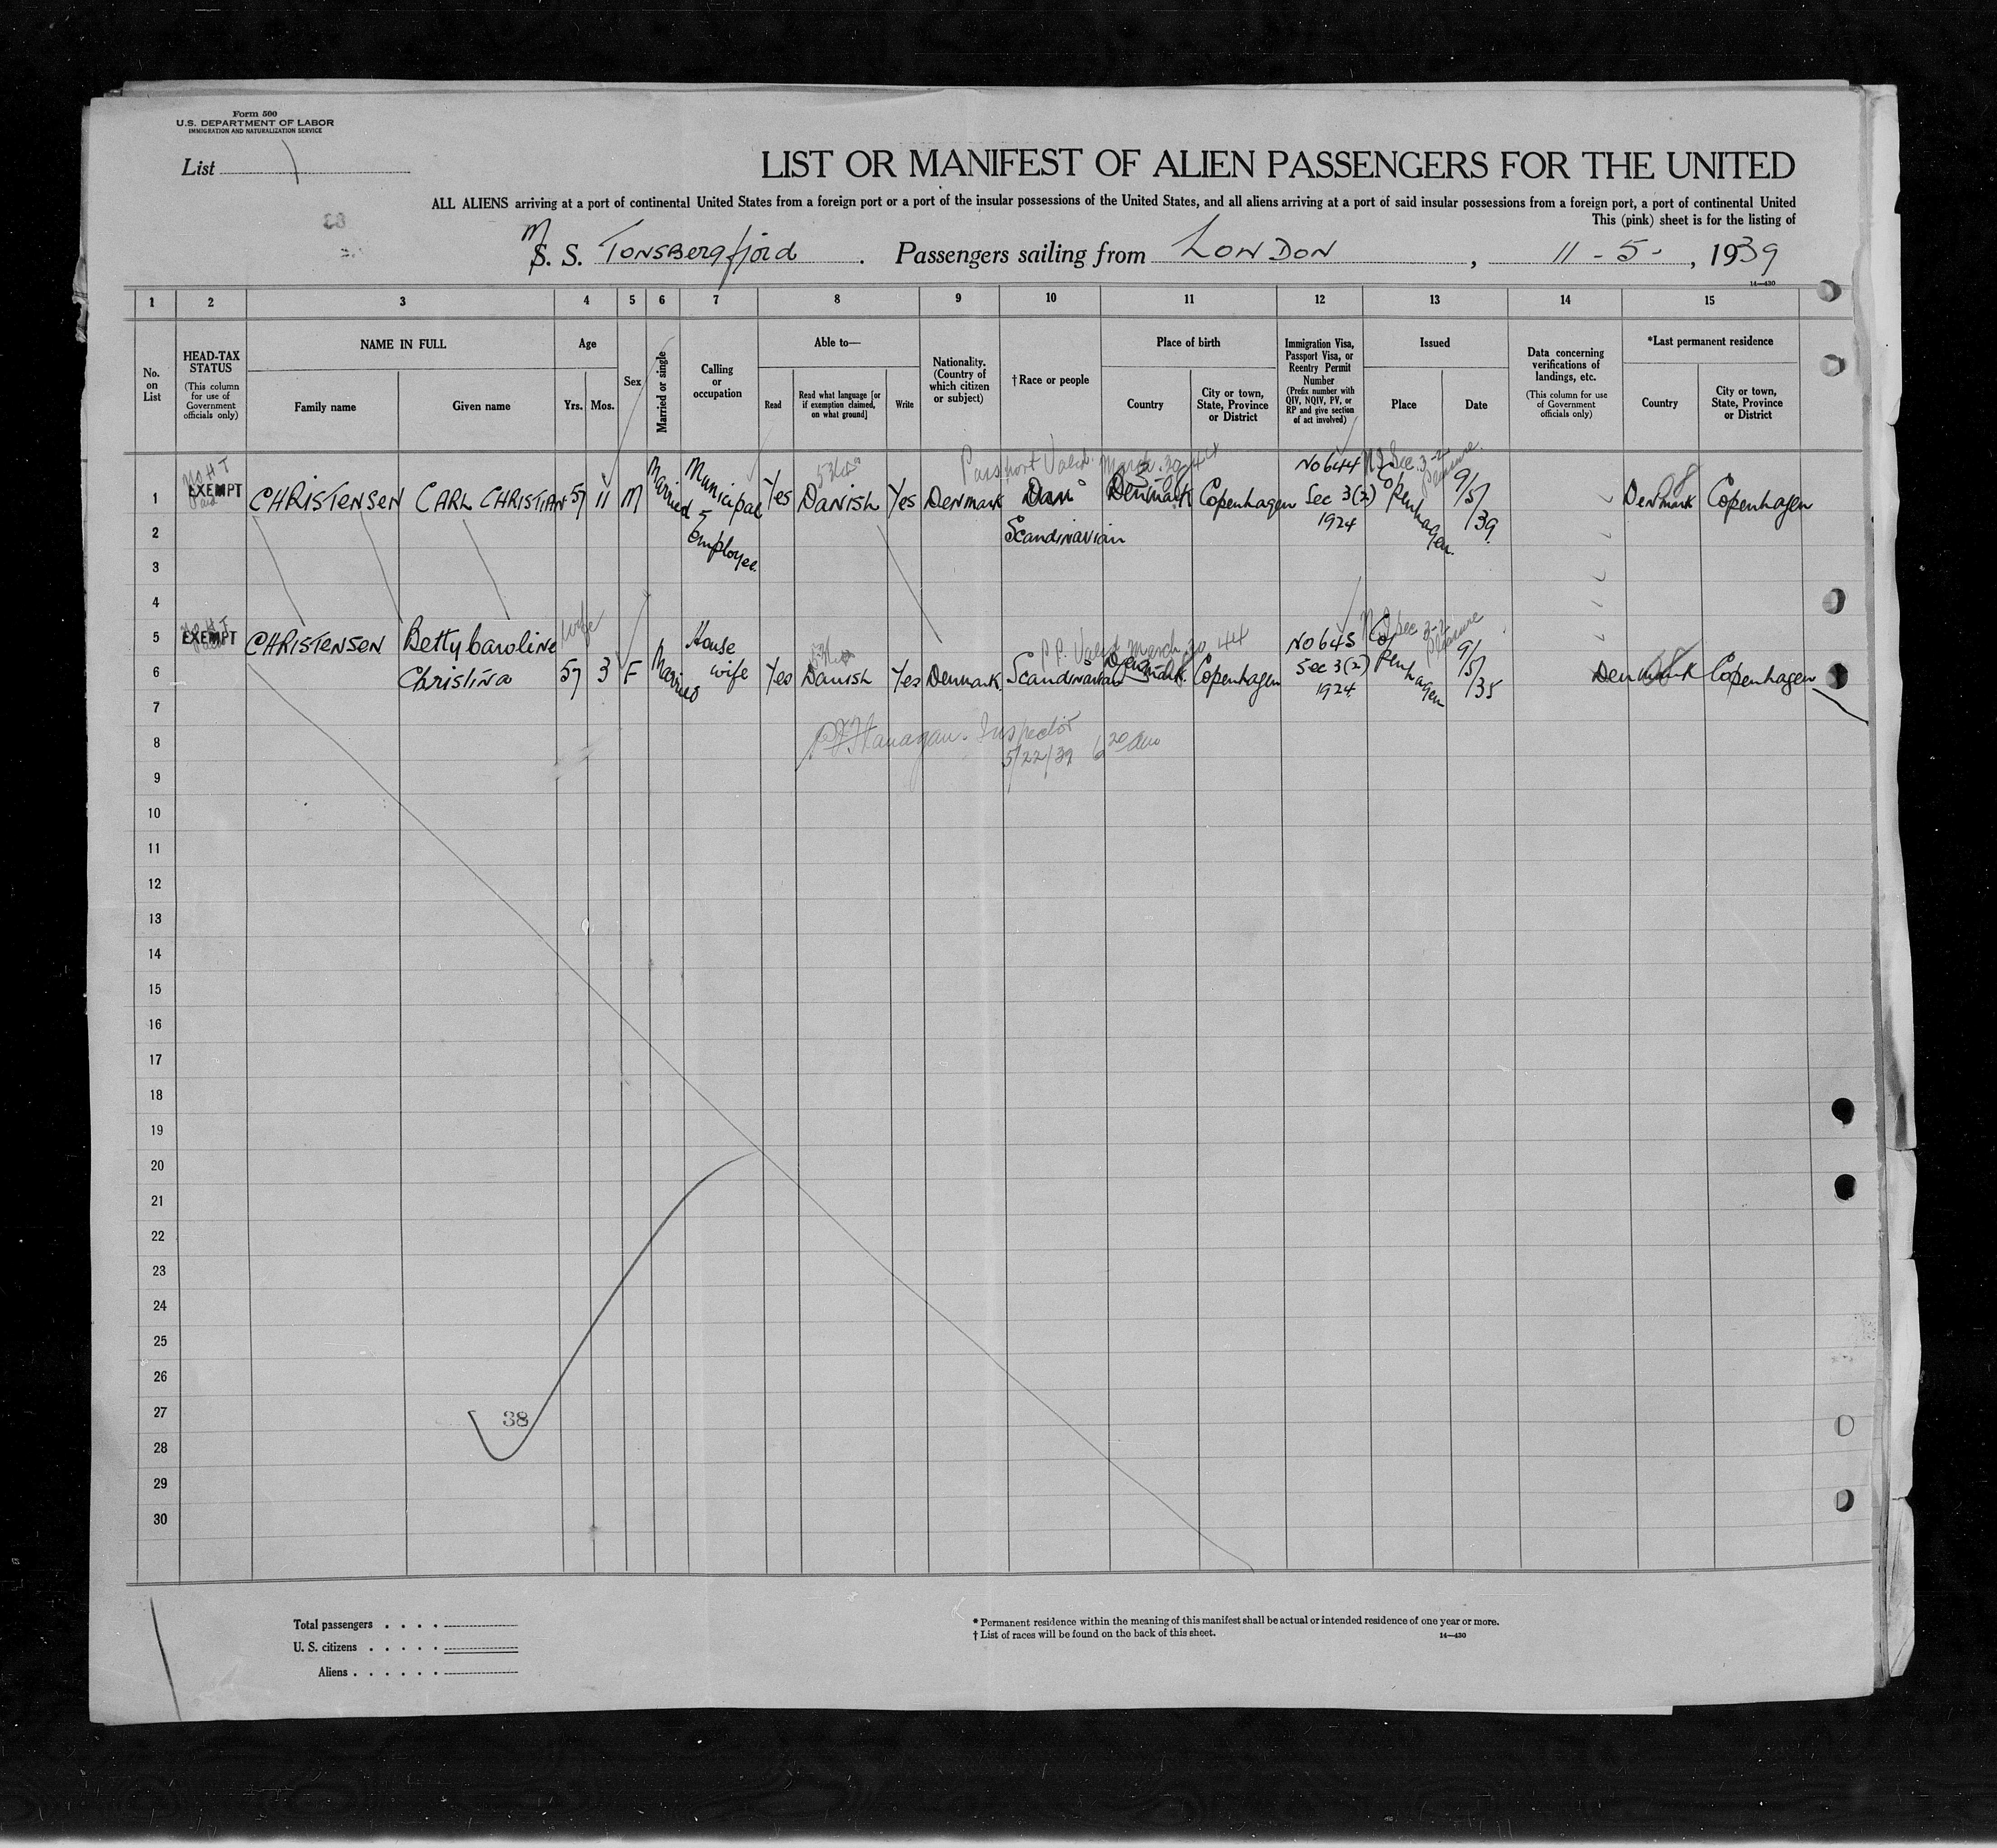 Form 500
U.S. DEPARTMENT OF LABOR
IMMIGRATION AND NATURALIZATION SERVICE
List
LIST OR MANIFEST OF ALIEN PASSENGERS FOR THE UNITED
ALL ALIENS arriving at a port of continental United States from a foreign port or a port of the insular possessions of the United States, and all aliens arriving at a port of said insular possessions from a foreign port, a port of continental United
This (pink) sheet is for the listing of
M S. S. TONSBERGfjord . Passengers sailing from LONDON , 11 - 5 - , 1939
14—430
1 2 3 4 5 6 7 8 9 10 11 12 13 14 15
No. on List
HEAD-TAX STATUS
(This column for use of Government officials only)
NAME IN FULL
Family name
Given name
Age
Yrs.
Mos.
Sex
Married or single
Calling or occupation
Able to—
Read
Read what language [or if exemption claimed, on what ground]
Write
Nationality. (Country of which citizen or subject)
†Race or people
Place of birth
Country
City or town, State, Province or District
Immigration Visa, Passport Visa, or Reentry Permit Number
(Prefix number with QIV, NQIV, PV, or RP and give section of act involved)
Issued
Place
Date
Data concerning verifications of landings, etc.
(This column for use of Government officials only)
*Last permanent residence
Country
City or town, State, Province or District
No HT Paid
Passport Valid March 30 44
1 EXEMPT CHRISTENSEN CARL CHRISTIAN 57 11 M Married Municipal employee. Yes DANISH Yes DENMARK Scandinavian Denmark Copenhagen No 644 Sec 3(2) 1924 Copenhagen 9/5/39. Denmark Copenhagen
Sec. 3-2 Pleasure
2
3
4
wife
P.P. Valid March 30 44
5 EXEMPT CHRISTENSEN Betty Caroline
6 Christina 57 3 F Married House wife Yes Danish Yes Denmark. Scandinavian Denmark. Copenhagen No 645 Sec 3(2) 1924 Copenhagen 9/5/35 Denmark Copenhagen
Sec 3-2 Pleasure
7
8 Flanagan. Inspector
5/22/39 6 20 am
9
10
11
12
13
14
15
16
17
18
19
20
21
22
23
24
25
26
27 38
28
29
30
Total passengers . . . .
U. S. citizens . . . . .
Aliens . . . . . .
* Permanent residence within the meaning of this manifest shall be actual or intended residence of one year or more.
† List of races will be found on the back of this sheet. 14—430